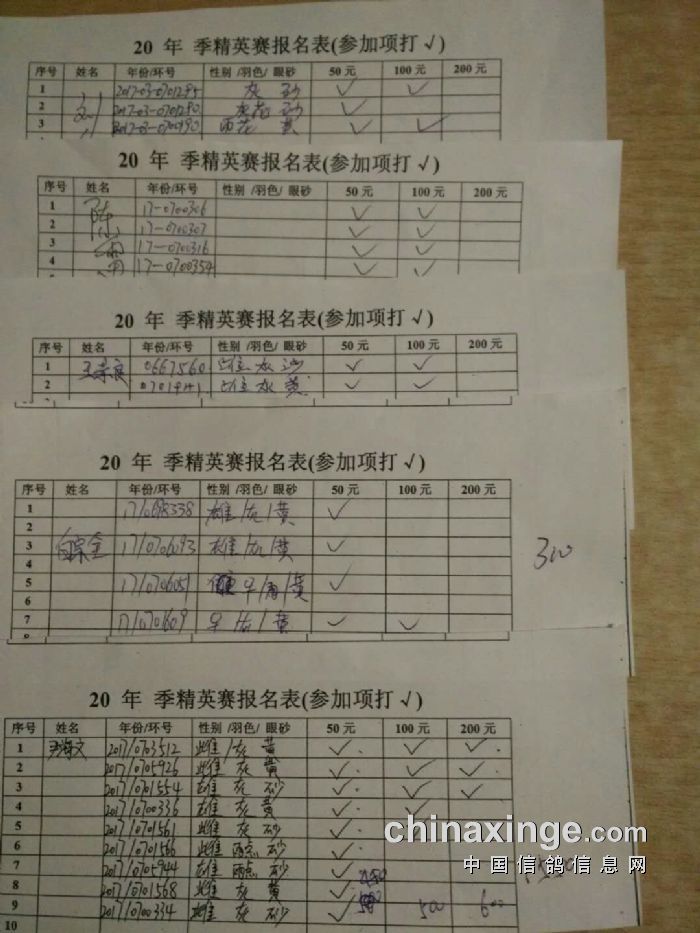 20 年 季精英赛报名表(参加项打 √)
序号 姓名 年份/环号 性别 /羽色/ 眼砂 50 元 100 元 200 元
1 2017-03-0701295 灰 砂 √ √
2 刘 2017-03-0701290 灰花 砂 √
3 雨花 黄 √ √
20 年 季精英赛报名表(参加项打 √)
序号 姓名 年份/环号 性别 /羽色/ 眼砂 50 元 100 元 200 元
1 陈 17-0700306 √ √
2 17-0700307 √ √
3 17-0700316 √ √
4 17-0700354 √ √
20 年 季精英赛报名表(参加项打 √)
序号 姓名 年份/环号 性别 /羽色/ 眼砂 50 元 100 元 200 元
1 0667560 雄 灰 沙 √ √
2 灰 黄 √ √
20 年 季精英赛报名表(参加项打 √)
序号 姓名 年份/环号 性别 /羽色/ 眼砂 50 元 100 元 200 元
1 雄/灰/黄 √
2
3 17/0706093 雄/灰/黄 √
4
5 17/0706051 黄 √
6
7 17/0701609 灰/黄 √ √
8
300
20 年 季精英赛报名表(参加项打 √)
序号 姓名 年份/环号 性别 /羽色/ 眼砂 50 元 100 元 200 元
1 2017/0703512 雌/灰 黄 √ √ √
2 2017/0705926 雌 灰 黄 √ √ √
3 2017/0701554 雄 灰 砂 √ √ √
4 2017/0700336 雄 灰 黄 √ √
5 2017/0701561 雌 灰 砂 √
6 2017/0701566 雌 雨点 砂 √
7 2017/0705944 雄 雨点 砂 √
8 2017/0701568 雌 灰 黄 √
9 2017/0700334 雄 灰 砂 √ 500 600
10
chinaxinge.com
中国信鸽信息网